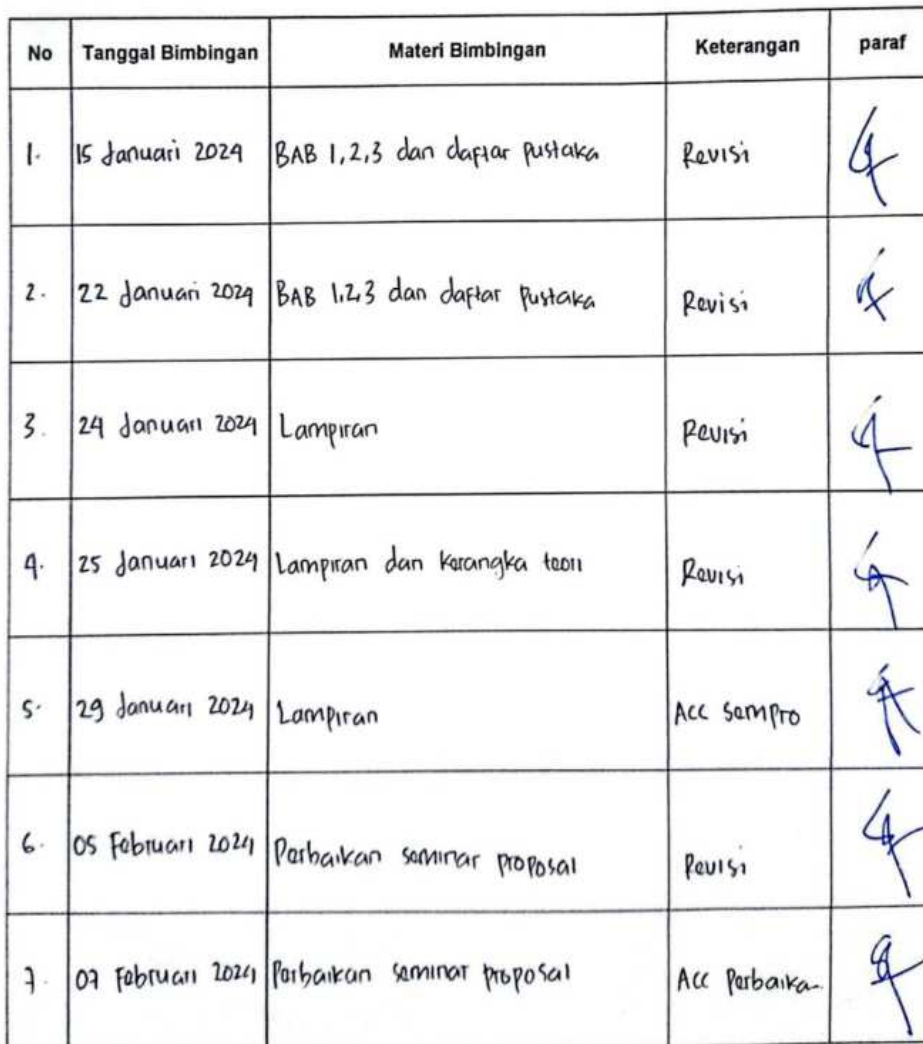 No Tanggal Bimbingan Materi Bimbingan Keterangan paraf
1. 15 Januari 2024 BAB 1,2,3 dan daftar pustaka Revisi
2. 22 Januari 2024 BAB 1,2,3 dan daftar pustaka Revisi
3. 24 Januari 2024 Lampiran Revisi
4. 25 Januari 2024 Lampiran dan kerangka teori Revisi
5. 29 Januari 2024 Lampiran Acc sempro
6. 05 Februari 2024 Perbaikan seminar proposal Revisi
7. 07 Februari 2024 Perbaikan seminar proposal Acc Perbaikan